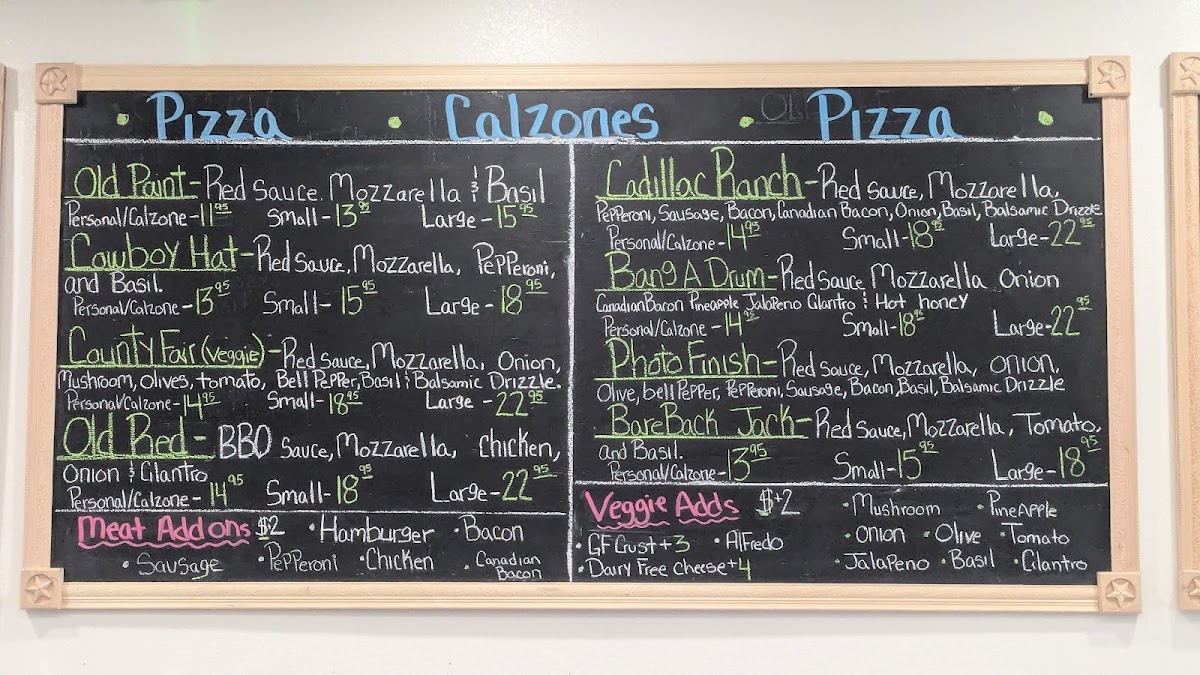 Pizza • Calzones • Pizza
Old Paint - Red Sauce, Mozzarella & Basil
Personal/Calzone - 11.95 Small - 13.95 Large - 15.95
Cowboy Hat - Red Sauce, Mozzarella, Pepperoni,
and Basil.
Personal/Calzone - 13.95 Small - 15.95 Large - 18.95
County Fair (veggie) - Red Sauce, Mozzarella, Onion,
Mushroom, Olives, tomato, Bell Pepper, Basil & Balsamic Drizzle.
Personal/Calzone - 14.95 Small - 18.95 Large - 22.95
Old Red - BBQ Sauce, Mozzarella, Chicken,
Onion & Cilantro
Personal/Calzone - 14.95 Small - 18.95 Large - 22.95
Meat Add ons $2 • Hamburger • Bacon
• Sausage • Pepperoni • Chicken • Canadian
Bacon
Cadillac Ranch - Red Sauce, Mozzarella,
Pepperoni, Sausage, Bacon, Canadian Bacon, Onion, Basil, Balsamic Drizzle
Personal/Calzone - 14.95 Small - 18.95 Large - 22.95
Bang A Drum - Red Sauce Mozzarella Onion
Canadian Bacon Pineapple Jalapeno Cilantro & Hot honey
Personal/Calzone - 14.95 Small - 18.95 Large - 22.95
Photo Finish - Red Sauce, Mozzarella, onion,
Olive, bell Pepper, Pepperoni, Sausage, Bacon, Basil, Balsamic Drizzle
BareBack Jack - Red Sauce, Mozzarella, Tomato,
and Basil.
Personal/Calzone - 13.95 Small - 15.95 Large - 18.95
Veggie Adds $+2 • Mushroom • Pineapple
• GF Crust +3 • Alfredo • Onion • Olive • Tomato
• Dairy Free Cheese +4 • Jalapeno • Basil • Cilantro